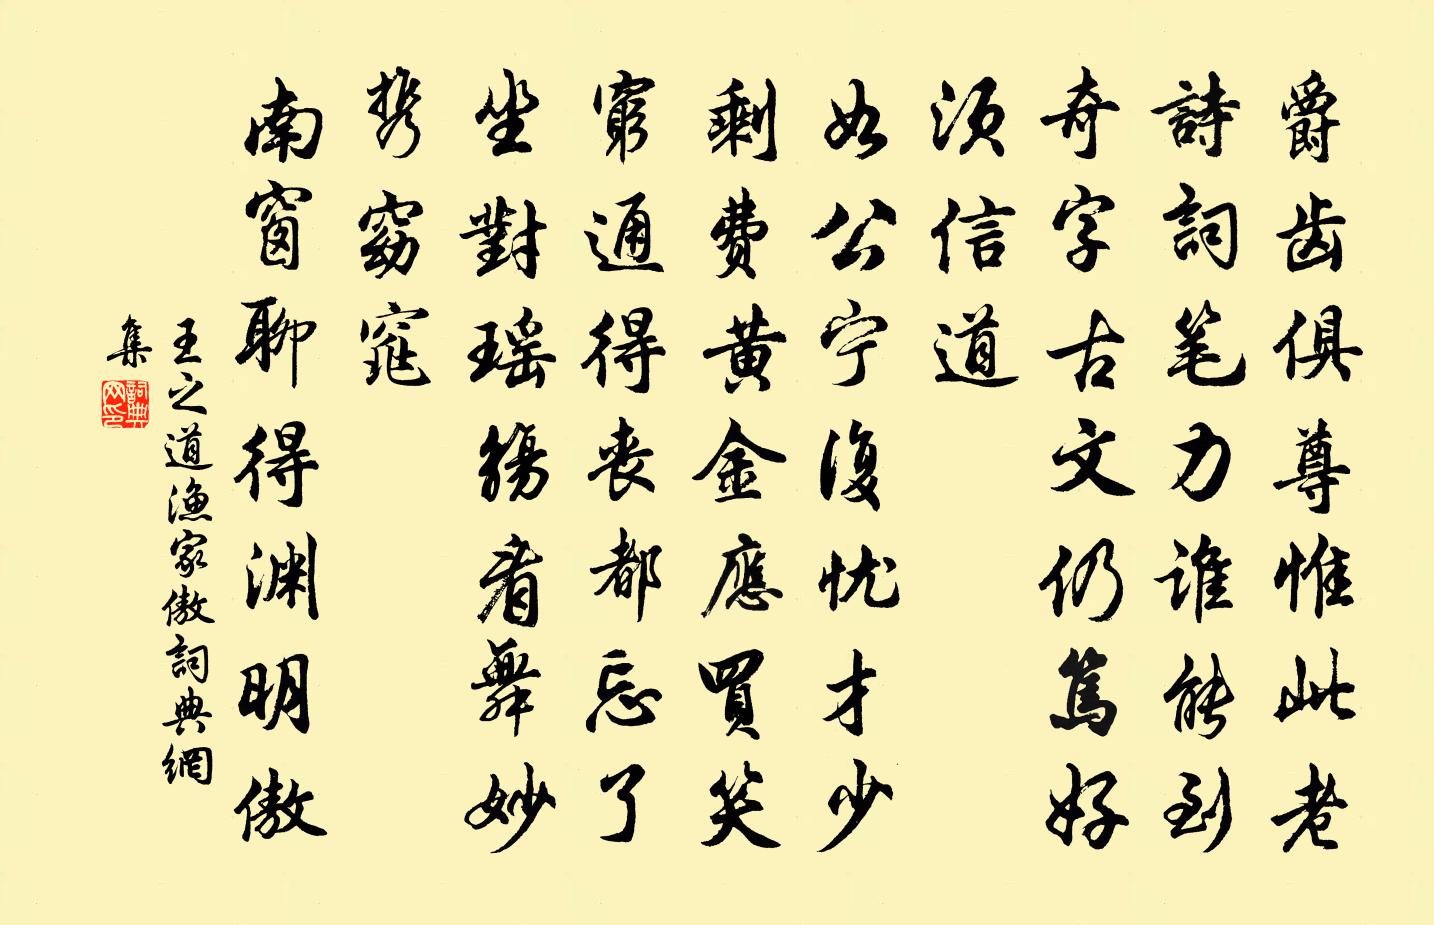 爵齿俱尊惟此老
詩詞笔力谁能到
奇字古文仍篤好
须信道
如公宁復忧才少
剩费黄金應買笑
窮通得丧都忘了
坐對瑶觞看舞妙
携窈窕
南窗聊得渊明傲
王之道漁家傲詞典網
集
詞典網印